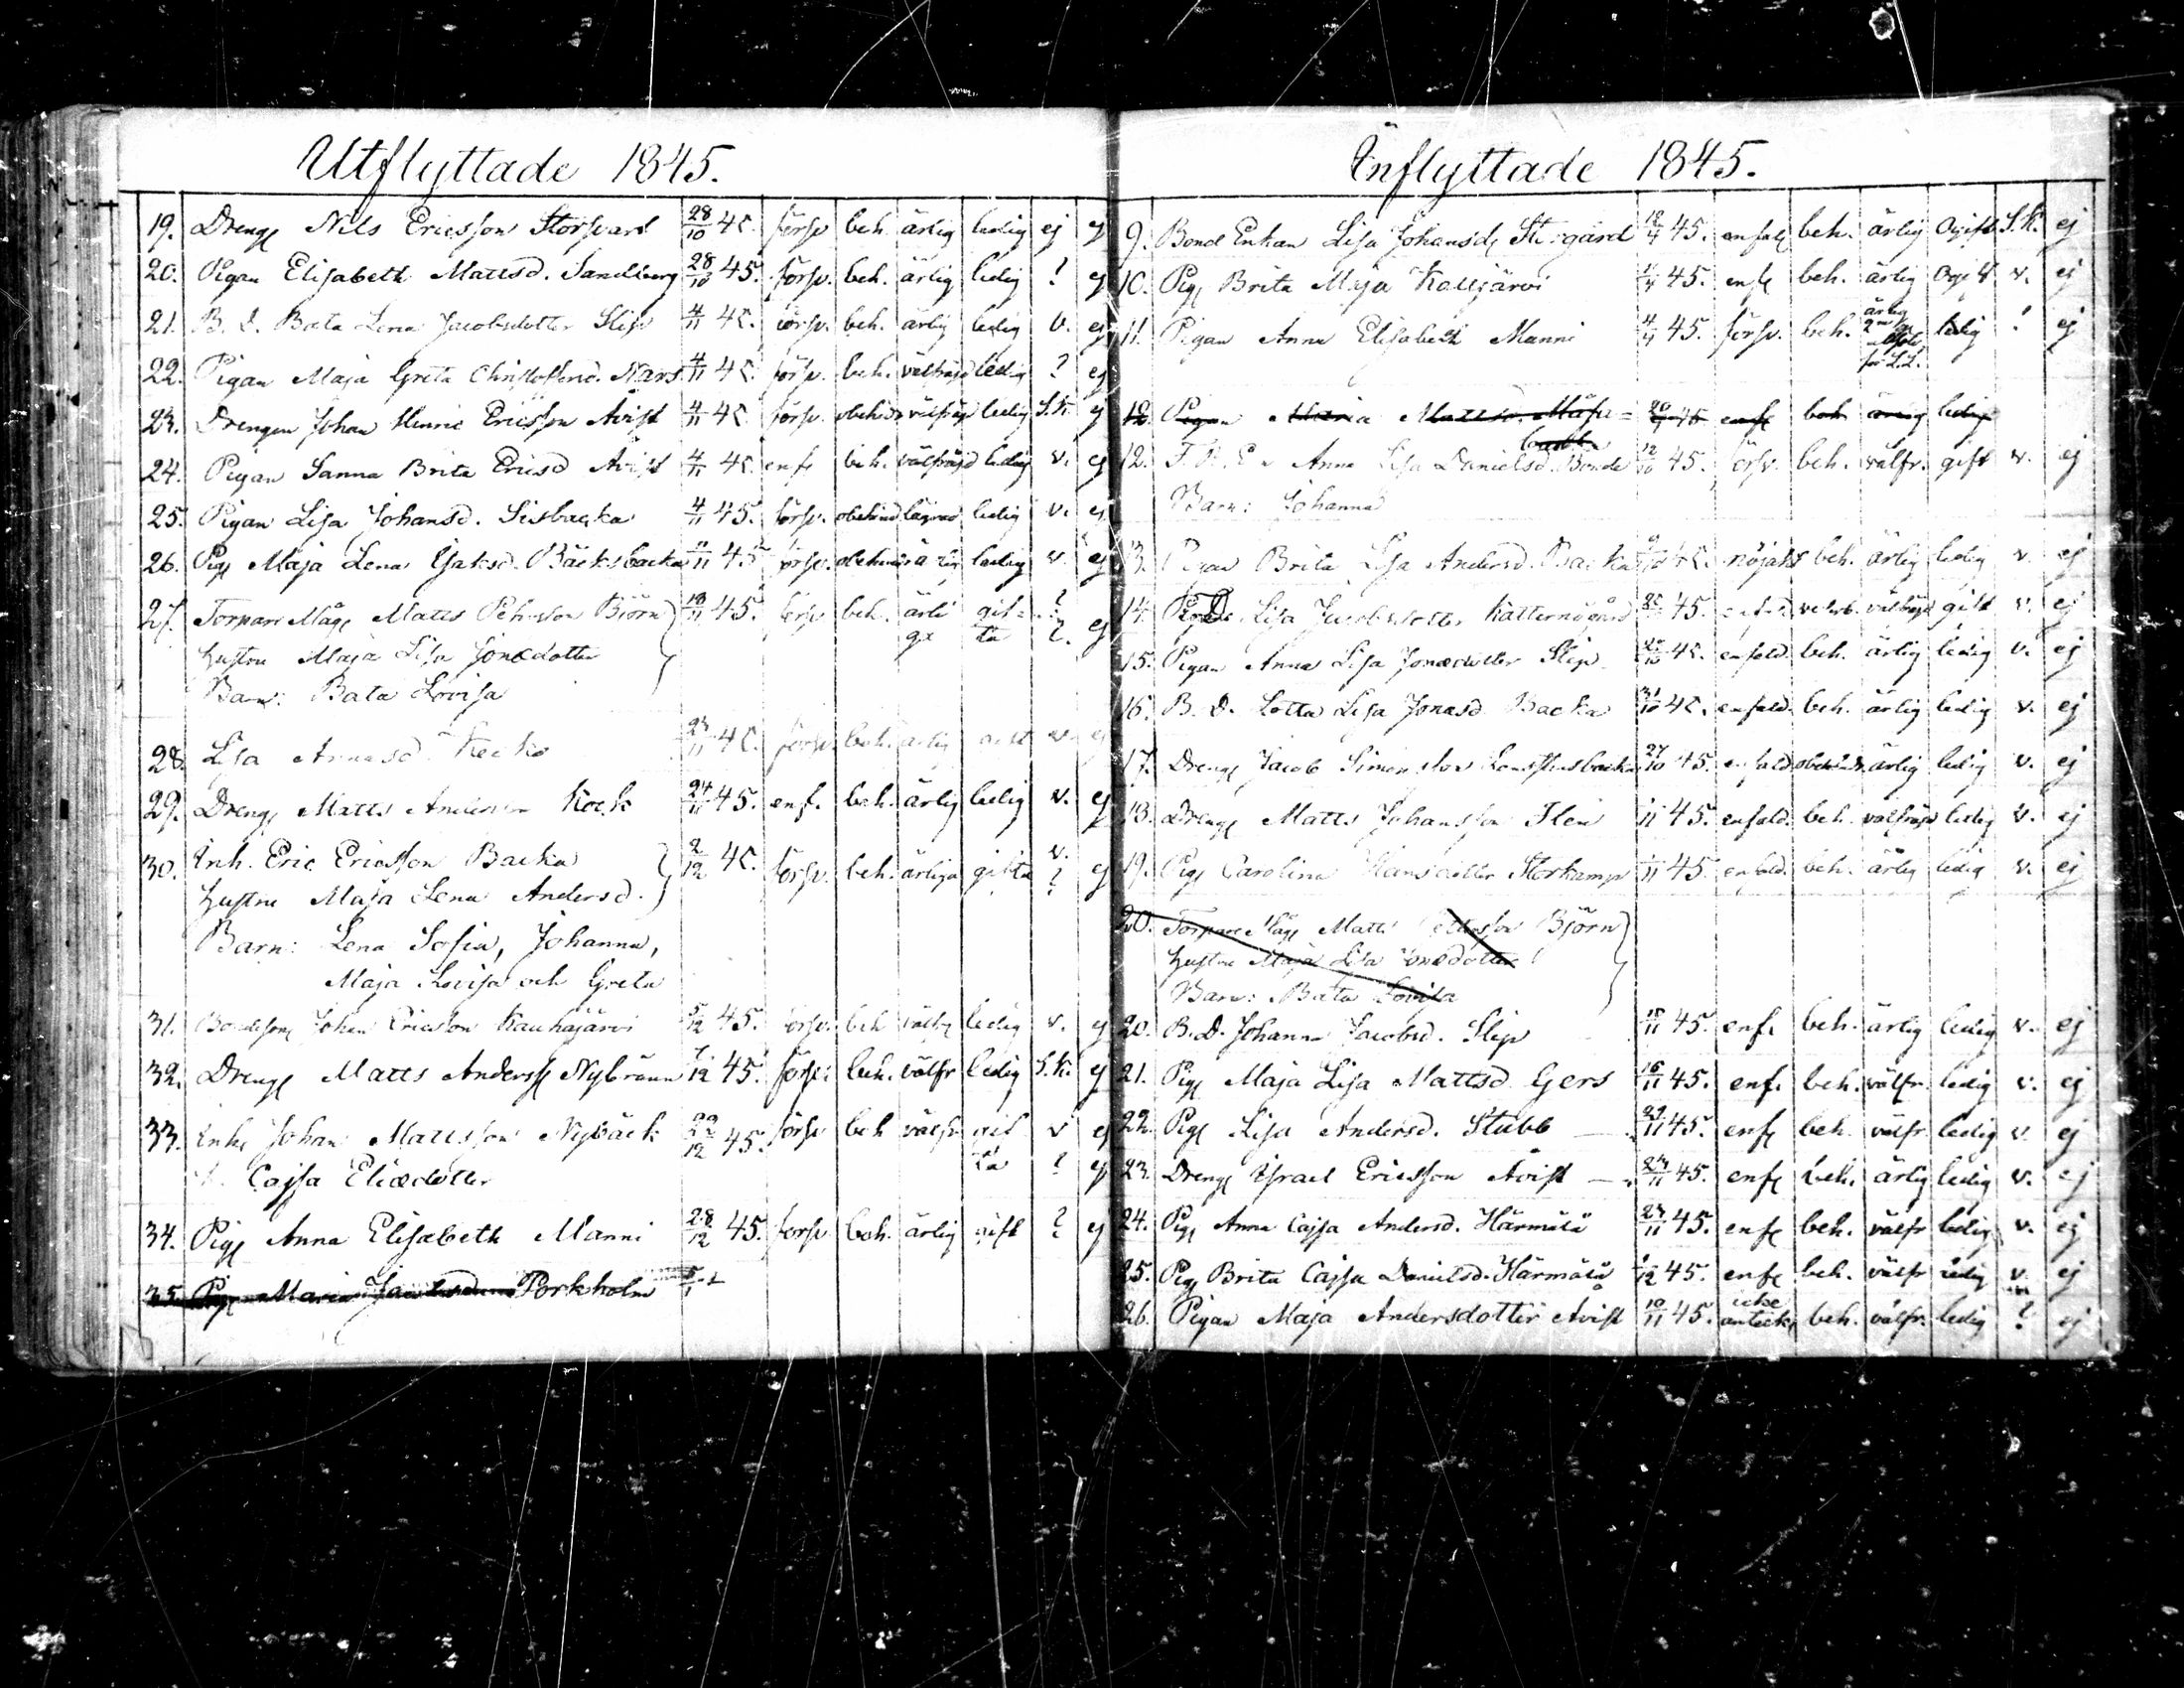 Utflyttade 1845.
19. Drengen Nils Ericsson 28/10 45. försv beh. ärlig ledig ej ej
20. Pigan Elisabeth Mattsd. Sandberg 28/10 45. försv. beh. ärlig ledig ? ej
21. B. D. Beata Lena Jacobsdotter Slip 4/11 45. försv. beh. ärlig ledig v. ej
22. Pigan Maja Greta Christoffersd. Nars 4/11 45. försv. beh. välfräjd ledig ? ej
23. Drengen Johan Henric Ericsson Åvist 4/11 45 försv. obehindr välfräjd ledig S.K. ej
24. Pigan Sanna Brita Ericsd Åvist 4/11 45 enf beh. välfräjd ledig v. ej
25. Pigan Lisa Johansd. Sisbacka 4/11 45. försv. obehind ledig v. ej
26. Pig Maja Lena Isaksd. Bäcksbacka /11 45 försv. obehindr ärlig ledig v. ej
27. Torpare Måg Matts Pehrsson Björn 18/11 45. försv beh. ärli gif= ?
ga ta ?. ej
hustru Maja Lisa Jonædotter
Barn: Bata Lovisa
28. Lisa 23/11 45. försv. beh. ärlig gift v. ej
29. Dreng Matts Andersson Kock 24/11 45. enf. beh. ärlig ledig v. ej
30. Inh. Eric Ericsson Backa 2/12 45. försv. beh. ärliga gifta v. ? ej
hustru Maja Lena Andersd.
Barn: Lena Sofia, Johanna,
Maja Lovisa och Greta
31. Bondeson Johan Ericsson Kauhajärvi 5/12 45. försv. beh välfr ledig v. ej
32. Dreng Matts Anderss Nybränn 7/12 45. försv: beh. välfr ledig S.K. ej
33. Inh Johan Mattsson Nybäck 22/12 45. försv beh välfr gif v ej
H. Cajsa Eliædotter ta ? ej
34. Pig Anna Elisabeth Manni 28/12 45. försv beh. ärlig gift ? ej
35. Pig Maria Jacobsd Porkholm 5/1
Inflyttade 1845.
9. Bond Enkan Lisa Johansd Storgård 45. enfald beh. ärlig Ogift S.K. ej
10. Pig Brita Maja Kaujärvi 45. enf beh. ärlig Ogift v. ej
11. Pigan Anna Elisabeth Manni 4/ 45. försv. beh. ärlig ledig ! ej
för L.L.
12. Pigan Maria Mattsd. 45 enf beh ärlig ledig
backa
12. Anna Lisa Danielsd. Bonde 12/10 45. försv. beh. välfr. gift v. ej
Barn: Johanna
13. Pigan Brita Lisa Andersd. Backa 45. nöjakt beh. ärlig ledig v. ej
14. Lisa Jacobsdotter Katternögård 45. välfräjd gift v. ej
15. Pigan Anna Lisa Jonædotter Slip 25/10 45. enfald. beh. ärlig ledig v. ej
16. B. D. Lotta Lisa Jonasd Backa 31/10 45. enfald. beh. ärlig ledig v. ej
17. Dreng Jacob Simonsson 27/10 45. enfald obehindr ärlig ledig v. ej
18. Dreng Matts Johansson Flen /11 45. enfald. beh. välfräjd ledig v. ej
19. Pig Carolina Hansdotter Storkamp /11 45. enfald. beh. ärlig ledig v. ej
20. Torpare Måg Matts Pettersson Björn
hustru Maja Lisa Jonædotter
Barn: Bata Lovisa
20. B. D. Johanna Jacobsd. Slip 15/11 45. enf. beh. ärlig ledig v. ej
21. Pig Maja Lisa Mattsd Gers 16/11 45. enf. beh. välfr. ledig v. ej
22. Pig Lisa Andersd. Stubb — 23/11 45. enf beh. välfr. ledig v. ej
23. Dreng Israel Ericsson Åvist — 23/11 45. enf beh. ärlig ledig v. ej
24. Pig Anna Cajsa Andersd. Härmälä 23/11 45. enf beh. välfr ledig v. ej
25. Pig Brita Cajsa Danielsd. Härmälä /12 45. enf beh. välfr ledig v. ej
26. Pigan Maja Andersdotter Åvist 10/11 45. icke anteckn beh. välfr. ledig ? ej